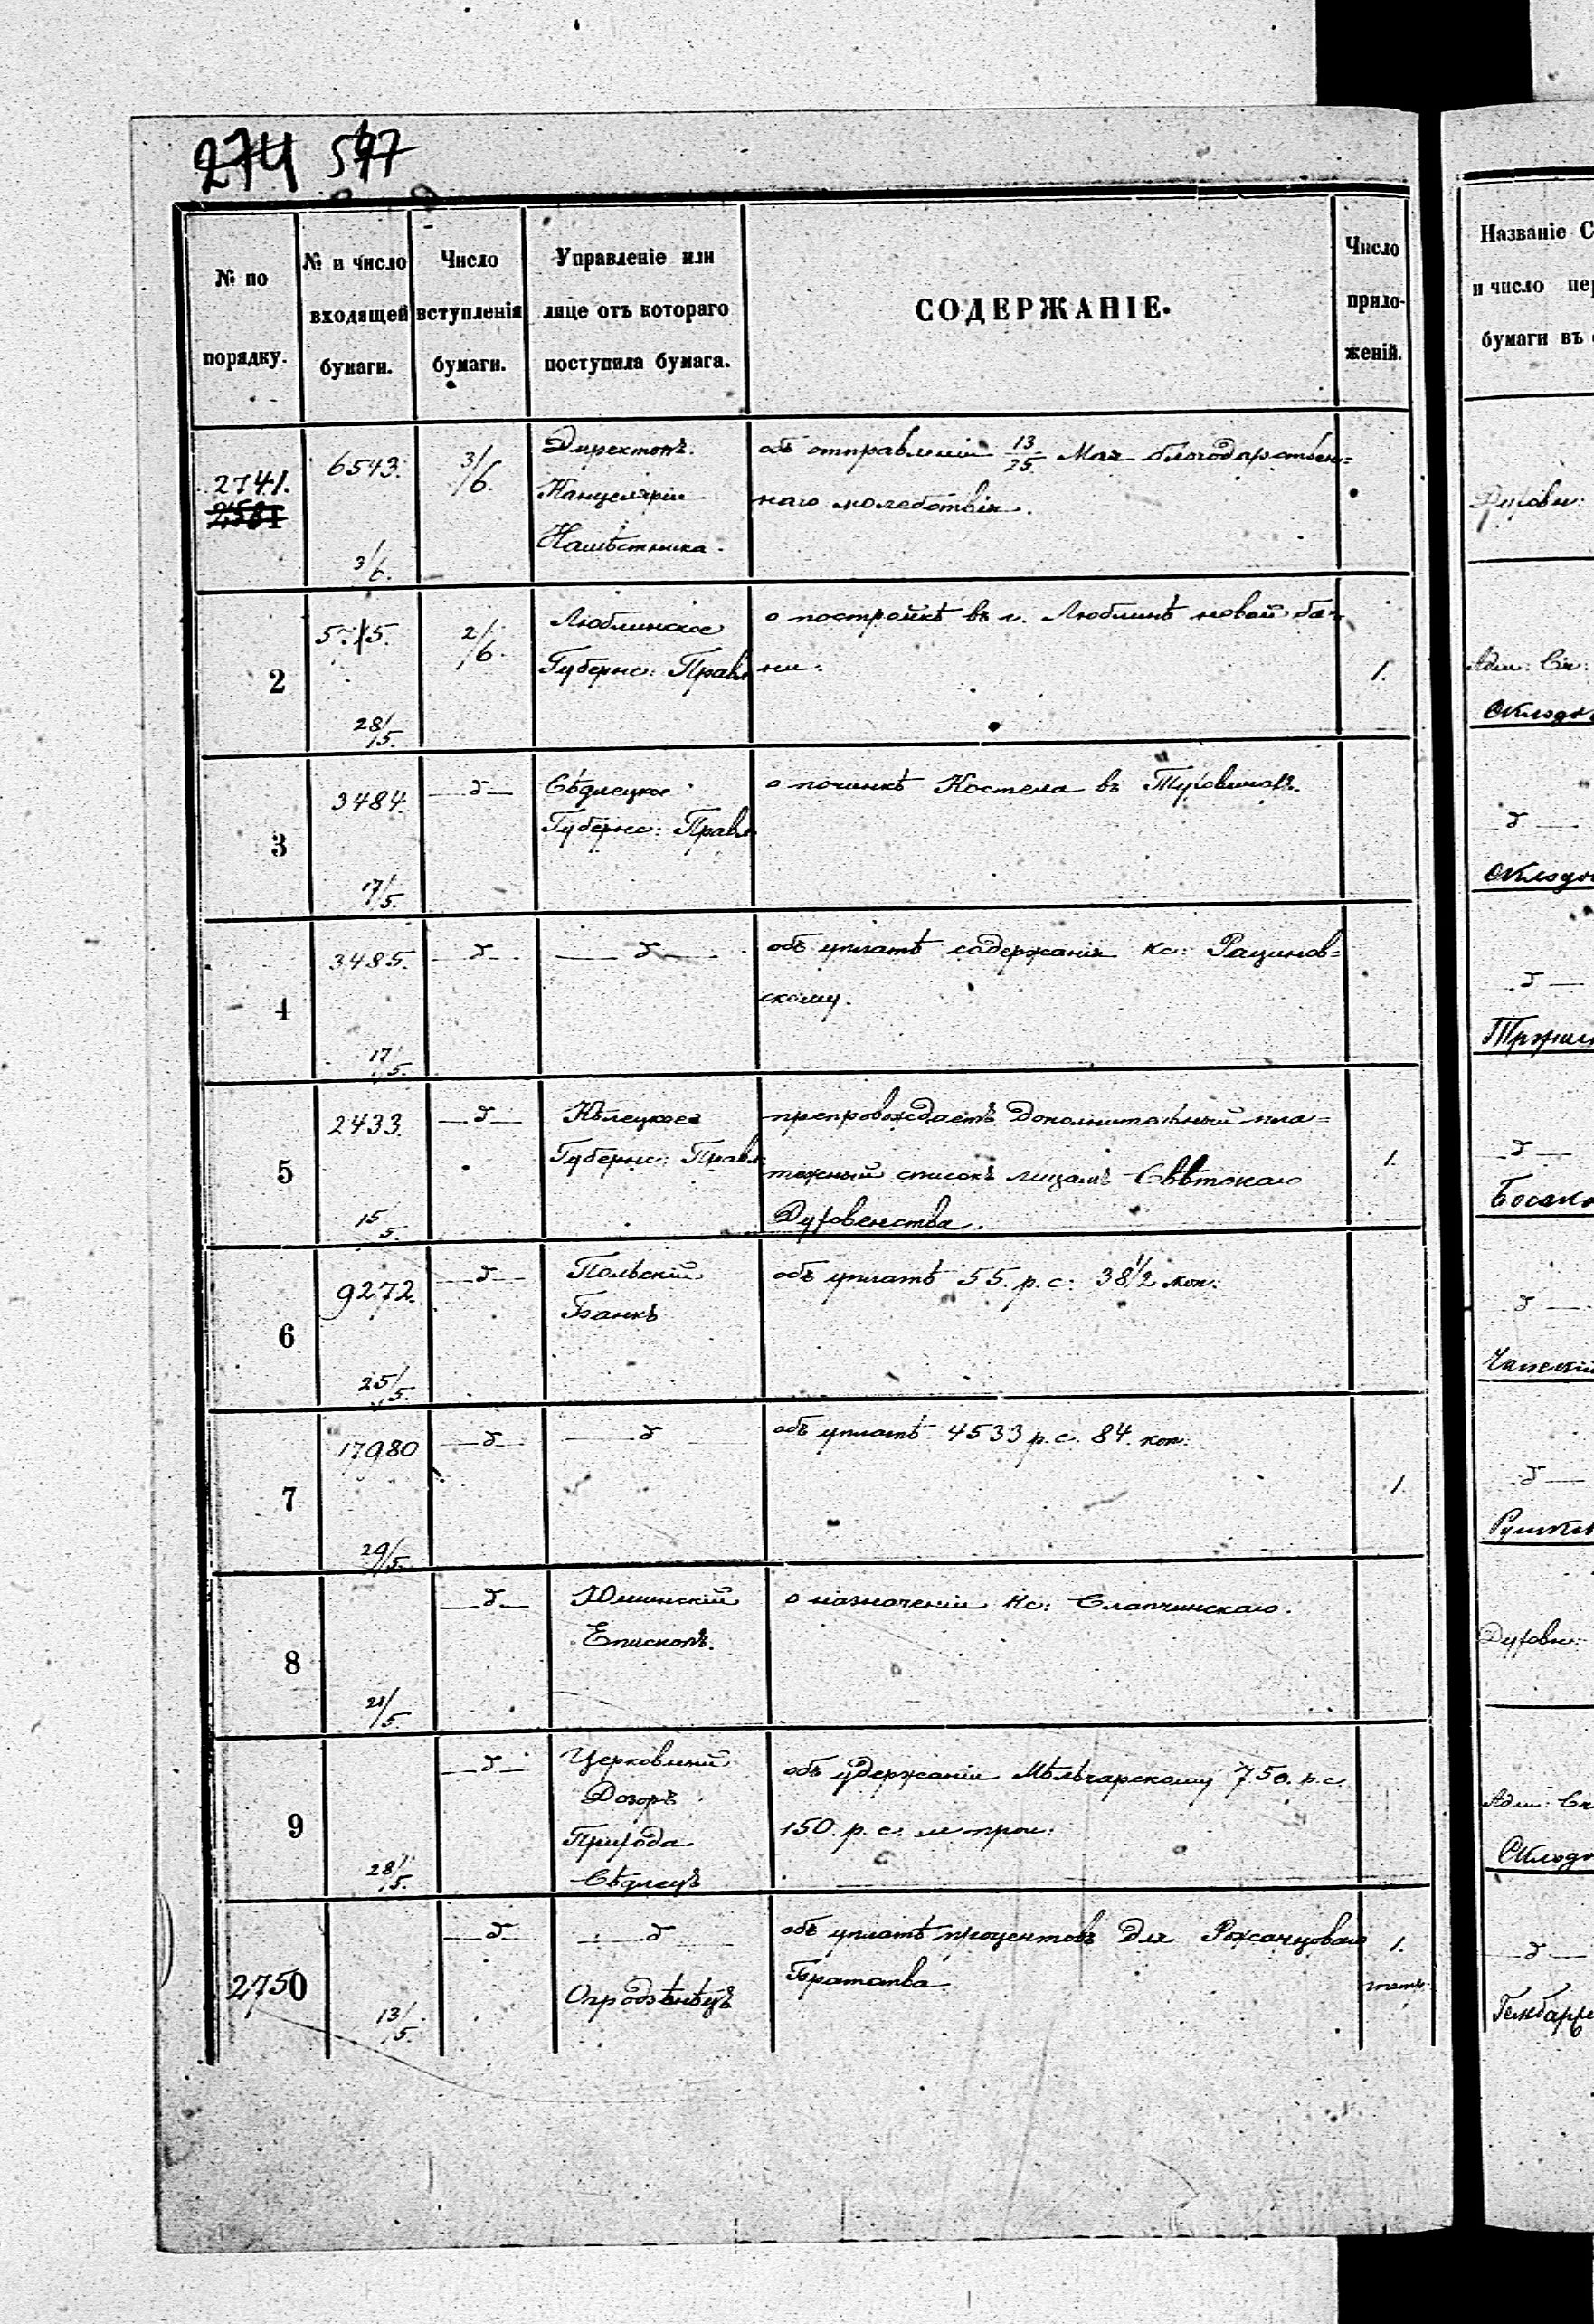 274 547
№ по
порядку.
№ и число
входящей
бумаги.
Число
вступленія
бумаги.
Управленіе или
лице отъ котораго
поступила бумага.
СОДЕРЖАНІЕ.
Число
прило-
женій.
2741.
2581
6543.
3/6.
3/6.
Директоръ.
Канцеляріи
Намѣстника.
объ отправленіи 13/25 Мая благодарствен=
наго молебствія.
2
28/5.
2/6.
Люблинское
Губернс: Правл
о постройкѣ въ г. Люблинѣ новой ба-
ни.
1.
3
3484.
17/5.
—δ—
Сѣдлецкое
Губернс: Правл
о починкѣ Костела въ
4
3485.
17/5.
—δ—
—δ—
объ уплатѣ содержанія Кс: Рацинов=
скому.
5
2433.
15/5.
—δ—
Кѣлецкое
Губернс: Правл
препровождаетъ дополнительный пла=
тежный списокъ лицамъ Свѣтскаго
Духовенства.
1.
6
9272.
25/5.
—δ—
Польскій
Банкъ
объ уплатѣ 55. р. с: 38 1/2 коп:
7
17980
29/5.
—δ—
—δ—
объ уплатѣ 4533 р. с. 84. коп.
1.
8
21/5.
—δ—
Епископъ.
о назначеніи Кс: Слапчинскаго.
9
28/5.
—δ—
Церковный
Дозоръ
Прихода
Сѣдлецъ
объ удержаніи Мѣльчарскому 750. р. с.
150. р. с. и проч:
2750
13/5.
—δ—
—δ—
Огродзѣнѣцъ
объ уплатѣ процентовъ для Рожанцоваго
Братства
1.
Названіе С
и число пер
бумаги въ
Духовн:
Адм: Ск:
Склодо
—δ—
Склодо
—δ—
—δ—
—δ—
—δ—
Духовн:
Адм: Ск
Склодо
—δ—